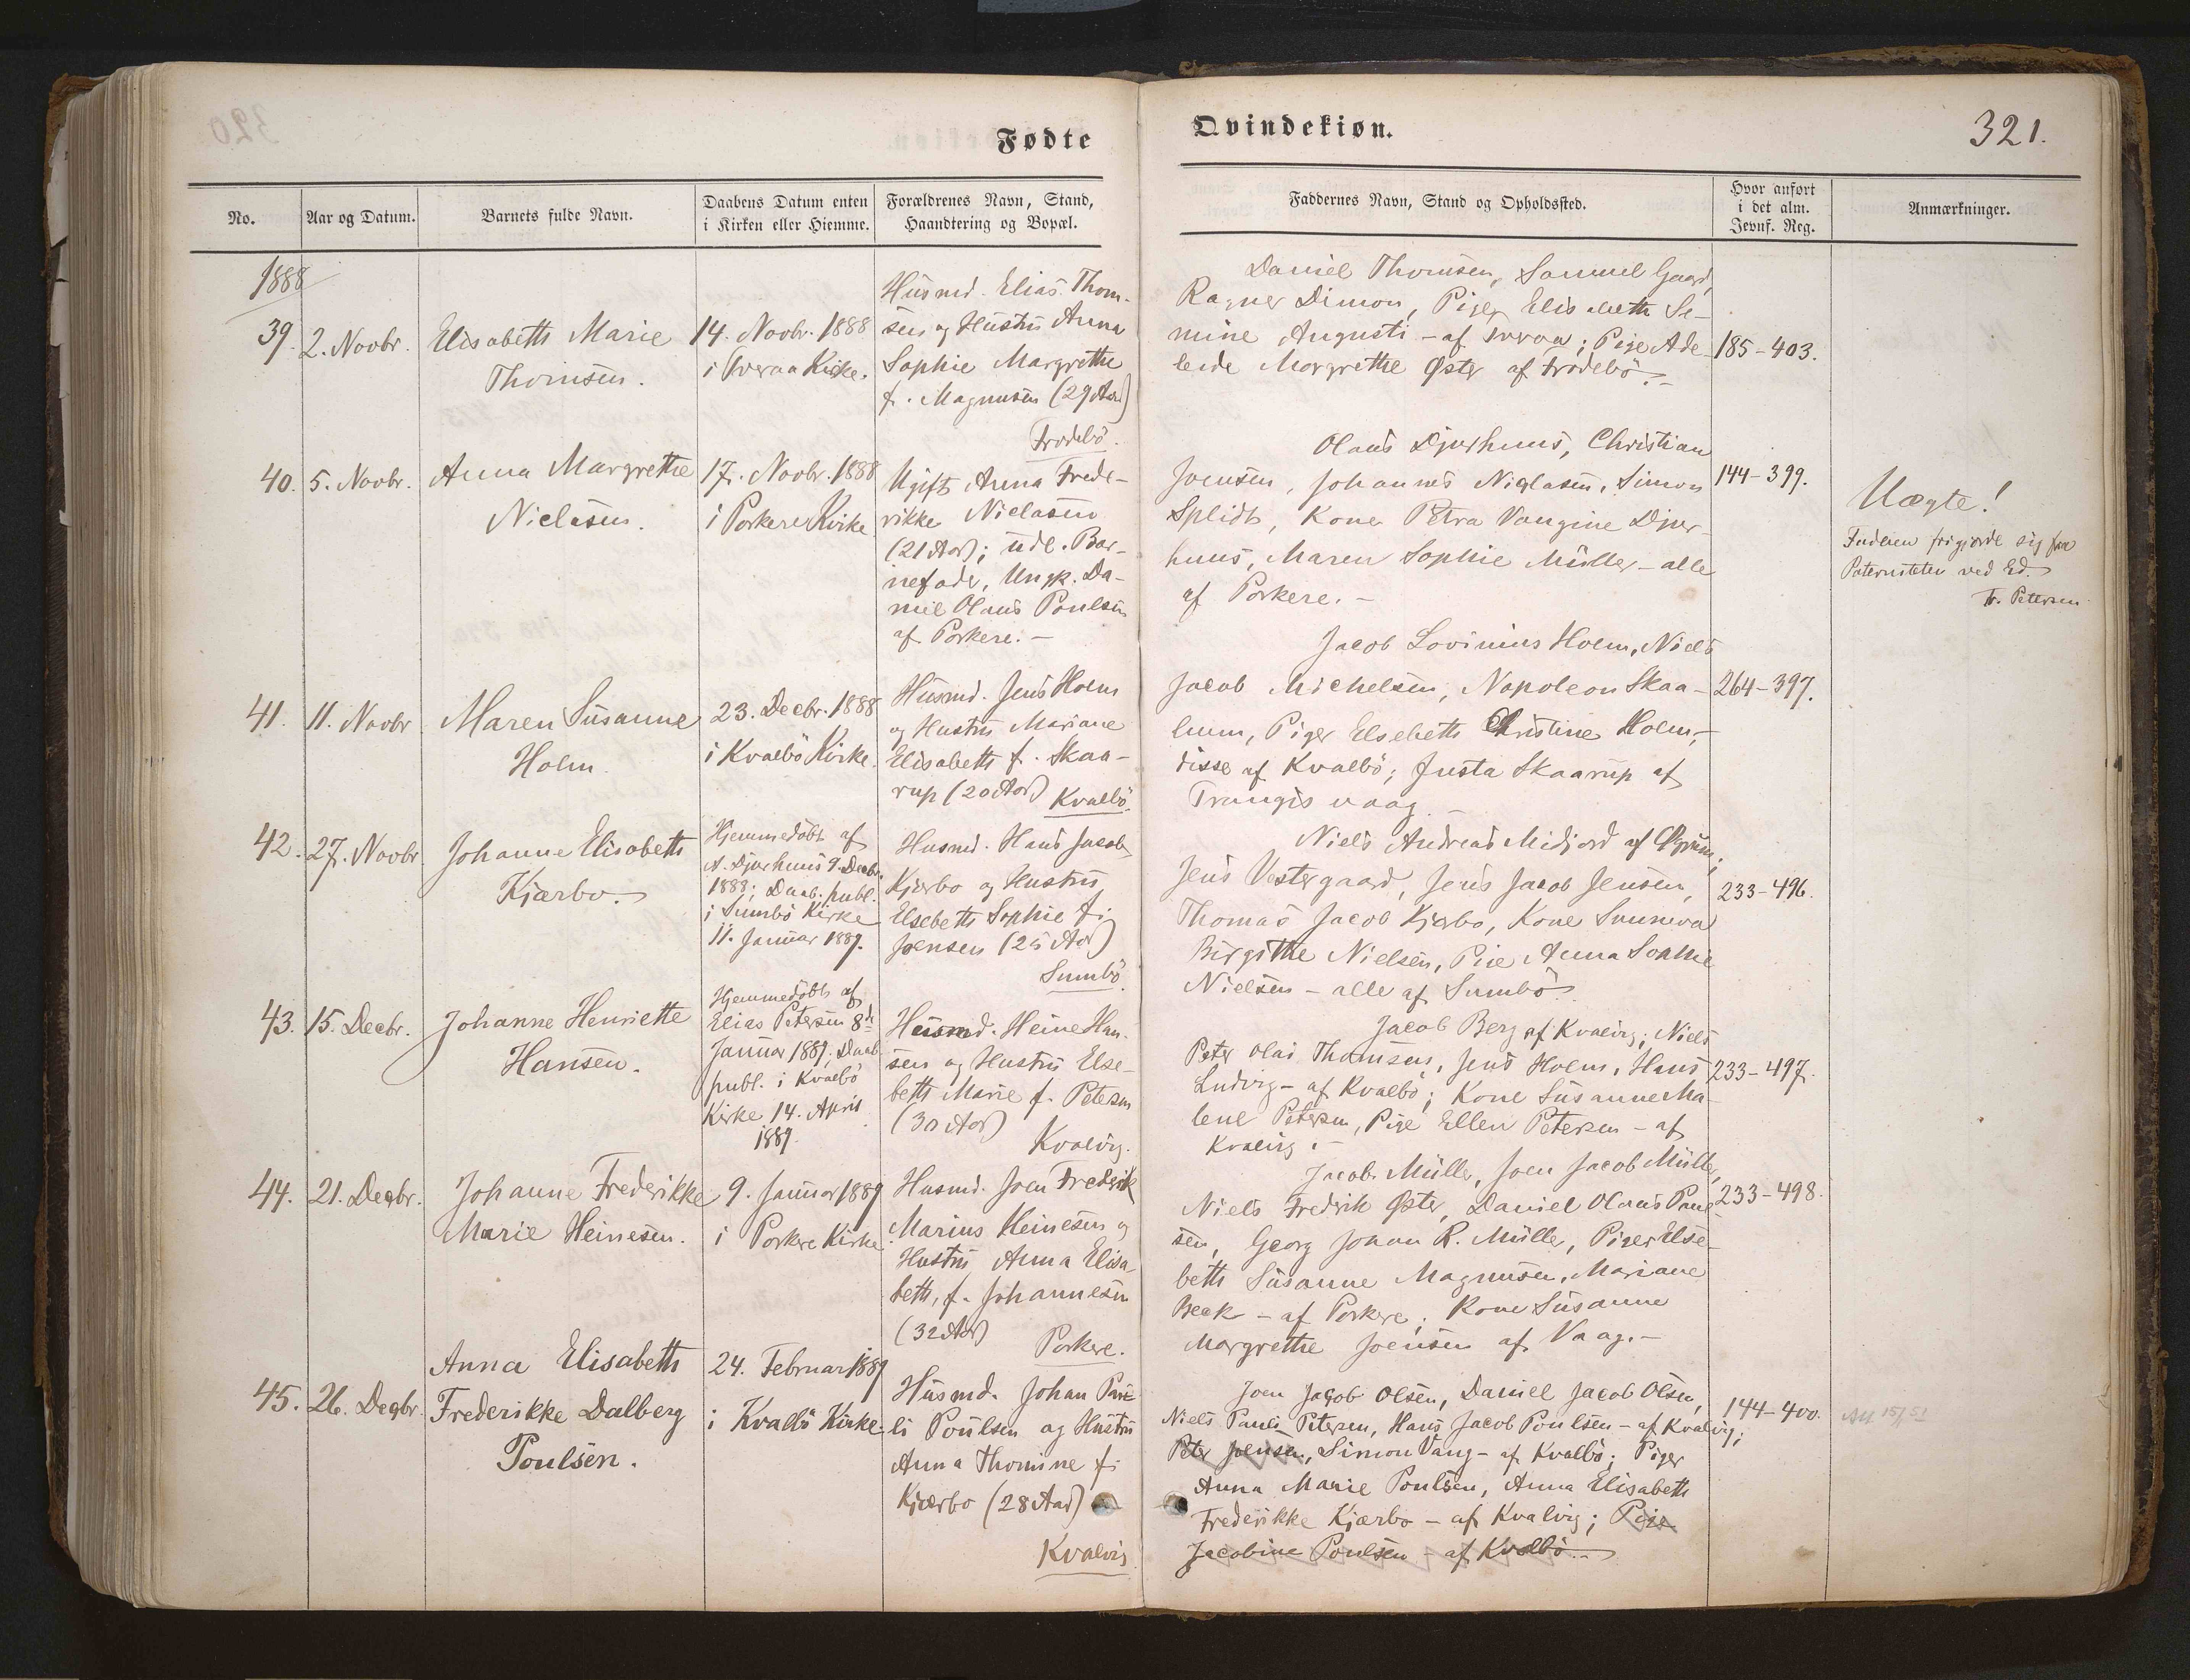 Fødte
Qvindekiøn.
321.
No.
Aar og Datum.
Barnets fulde Navn.
Daabens Datum enten
i Kirken eller Hiemme.
Forældrenes Navn, Stand,
Haandtering og Bopæl.
Faddernes Navn, Stand og Opholdssted.
Hvor anført
i det alm.
Jevnf. Reg.
Anmærkninger.
1888
39.
2. Novbr.
Elisabeth Marie
Thomsen.
14. Novbr. 1888
i Kirke.
Husmd. Elias Thom-
sen og Hustru Anna
Sophie Margrethe
f. Magnusen (29 Aar)
Frodebö.
Daniel Thomsen, Samuel Gaard,
Ragner Dimon, Piger Elisabeth Se-
mine Augusti - af ; Pige Ade-
leide Margrethe Øster af Frodebö. -
185-403.
40.
5. Novbr.
Anna Margrethe
Niclasen.
17. Novbr. 1888
i Porkere Kirke
Ugift Anna Frede-
rikke Niclasen
(21 Aar); udl. Bar-
nefader, Ungk. Da-
niel Olaus Poulsen
af Porkere. -
Olaus Djurhuus, Christian
Joensen, Johannes Niclasen, Simon
Splidt, Kone Petra Vangine Djur-
huus, Maren Sophie Müller - alle
af Porkere. -
144-399.
Uægte!
Faderen frigjorde sig for
Paterniteten ved Ed.
Fr. Petersen
41.
11. Novbr
Maren Susanne
Holm
23. Decbr. 1888
i Kvalbö Kirke.
Husmd. Jens Holm
og Hustru Mariane
Elisabeth f. Skaa-
rup (20 Aar) Kvalbö.
Jacob Lovinius Holm, Niels
Jacob Michelsen, Napoleon Skaa-
lum, Piger Elsebeth Christine Holm, -
disse af Kvalbö; Justa Skaarup af
Trangisvaag -
264-397.
42.
27. Novbr.
Johanne Elisabeth
Kjærbo.
Hjemmedöbt af
A. Djurhuus 9. Decbr.
1888; Daab. publ.
i Sumbö Kirke
11. Januar 1889.
Husmd. Hans Jacob
Kjærbo og Hustru
Elsebeth Sophie f.
Joensen (25 Aar)
Sumbö.
Niels Andreas Midjord af ;
Jens Vestergaard, Jens Jacob Jensen,
Thomas Jacob Kjærbo, Kone Sunneva
Birgithe Nielsen, Pige Anna Sophie
Nielsen - alle af Sumbö.
233-496.
43.
15. Decbr.
Johanne Henriette
Hansen.
Hjemmedöbt af
Elias Petersen 8de
Januar 1889; Daab.
publ. i Kvalbö
Kirke 14. April
1889.
Husmd. Heine Han-
sen og Hustru Else-
beth Marie f. Petersen
(30 Aar)
Kvalvig.
Jacob Berg af Kvalvig; Niels
Peter Olai Thomsen, Jens Holm, Hans
Ludvig - af Kvalbö; Kone Susanne Ma-
lene Petersen, Pige Ellen Petersen - af
Kvalvig. -
233-497.
44.
21. Decbr.
Johanne Frederikke
Marie Heinesen.
9. Januar 1889
i Porkere Kirke.
Husmd. Joen Fredrik
Marius Heinesen og
Hustru Anna Elisa-
beth, f. Johannesen
(32 Aar)
Porkere.
Jacob Müller, Joen Jacob Müller,
Niels Fredrik Øster, Daniel Olaus Poul-
sen, Georg Johan R. Müller, Piger Else-
beth Susanne Magnusen, Mariane
Beck - af Porkere; Kone Susanne
Margrethe Joensen af Vaag. -
233-498.
45.
26. Decbr.
Anna Elisabeth
Frederikke Dalberg
Poulsen.
24. Februar 1889
i Kvalbö Kirke.
Husmd. Johan Pau-
li Poulsen og Hustru
Anna Thomine f.
Kjærbo (28 Aar)
Kvalvig
Joen Jacob Olsen, Daniel Jacob Olsen,
Niels Pauli Petersen, Hans Jacob Poulsen - af Kvalvig;
Peter Joensen, Simon Vang - af Kvalbö; Piger
Anna Marie Poulsen, Anna Elisabeth
Frederikke Kjærbo - af Kvalvig; Pige
Jacobine Poulsen - af Kvalbö. -
144-400.